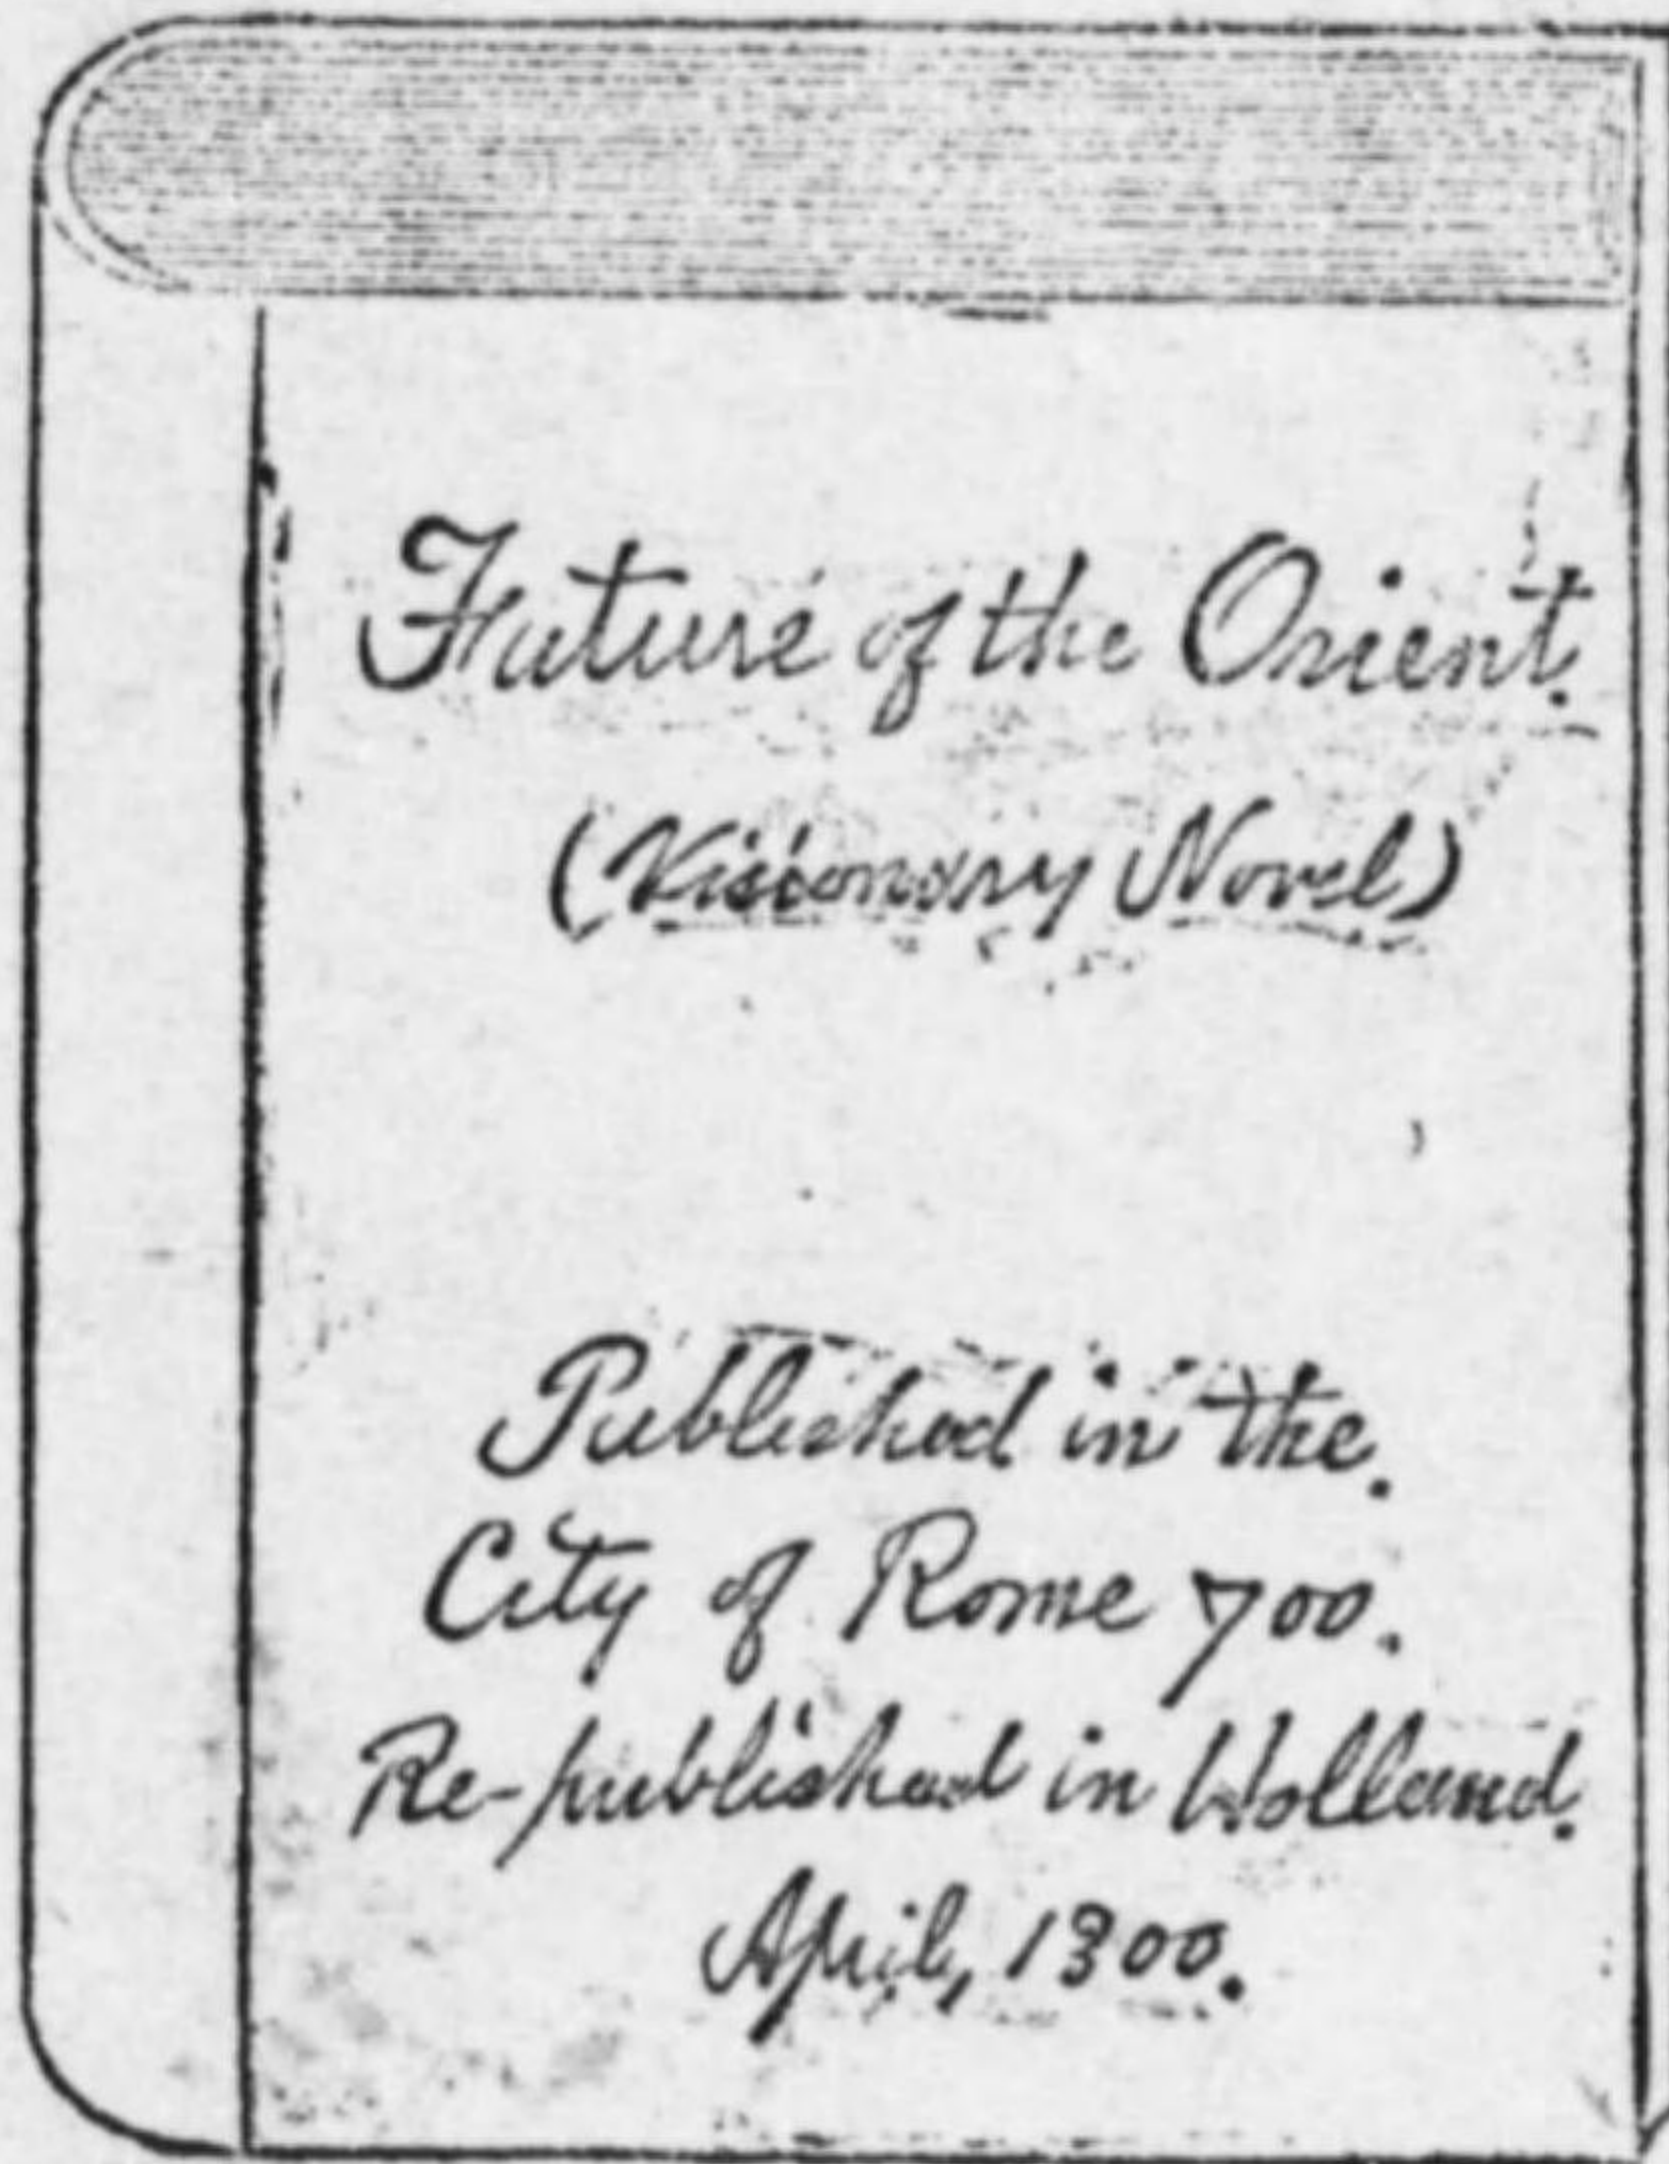 Future of the Orient.
(Visionary Novel)
Published in the.
City of Rome 700.
Re-published in Holland.
April, 1300.